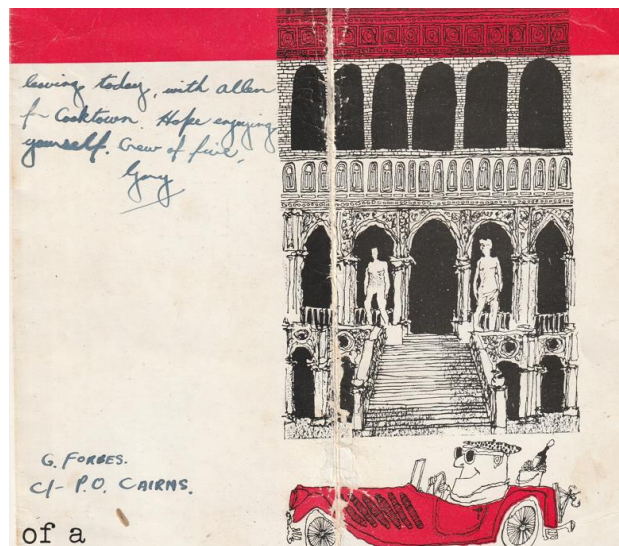 leaving today, with allen
f- Cooktown. Hope enjoying
yourself. Crew of five,
Gary
G. FORBES.
C/- P.O. CAIRNS.
of a